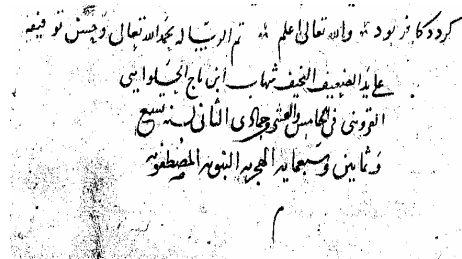 کردد کافر بود والله تعالی اعلم تم الرسالة بحمدالله تعالی وحسن توفیقه
علی ید الضعیف النحیف شهاب ابن تاج
القزوینی فی الخامس والعشر جمادی الثانی لسنه تسع
وثمانین وسبعمایه الهجریه النبویه المصطفویه
م